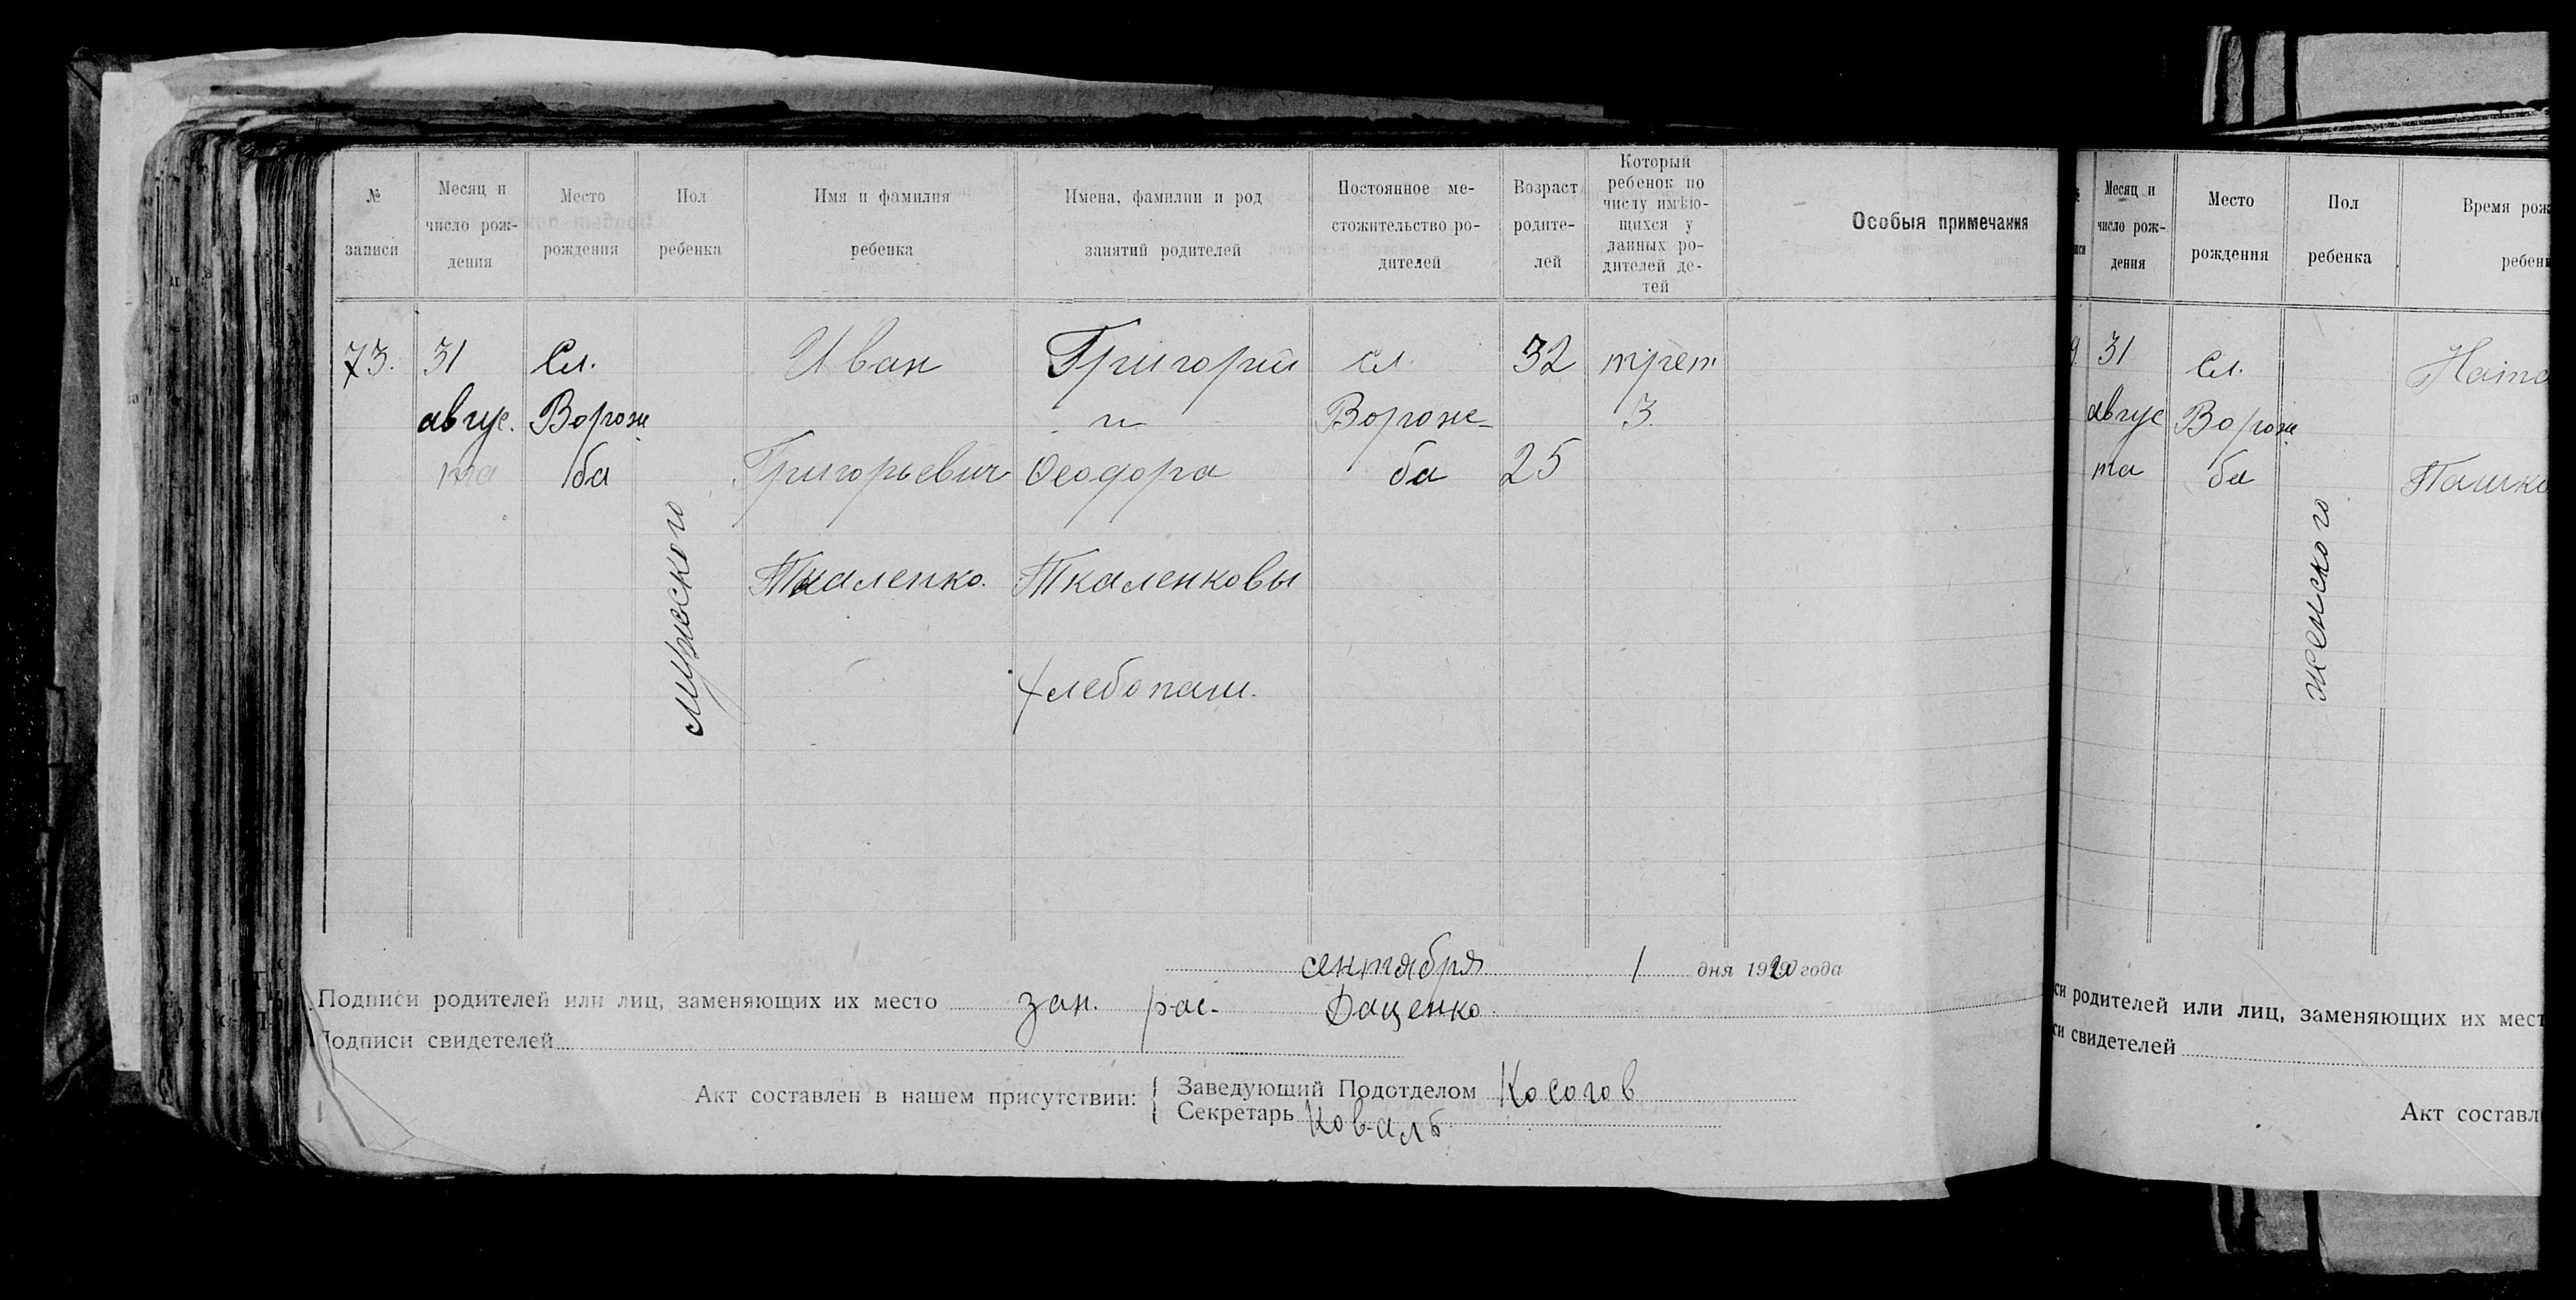 № записи
Месяц и число рож-дения
Место рождения
Пол ребенка
Имя и фамилия ребенка
Имена, фамилии и род занятий родителей
Постоянное ме-стожительство ро-дителей
Возраст родите-лей
Который ребенок по числу имѣю-щихся у данных ро-дителей де-тей
Особыя примечания
73.
31
авгус.
та
Сл.
Ворож
ба
мужеского
Иван
Григорьевич
Ткаленко.
Григорий
и
Феодора
Ткаленковы
хлебопаш.
сл.
Ворож-
ба
32
25
трет
3.
сентября 1 дня 1920 года
Подписи родителей или лиц, заменяющих их место зап. рас. Даценко
Подписи свидетелей
Акт составлен в нашем присутствии:
Заведующий Подотделом Косогов
Секретарь Коваль
Месяц и число рож-дения
Место рождения
Пол ребенка
Время рож
ребен
31
авгус
та
Сл.
Ворож
ба
женского
Ната
Пашко
си родителей или лиц, заменяющих их мест
си свидетелей
Акт составл